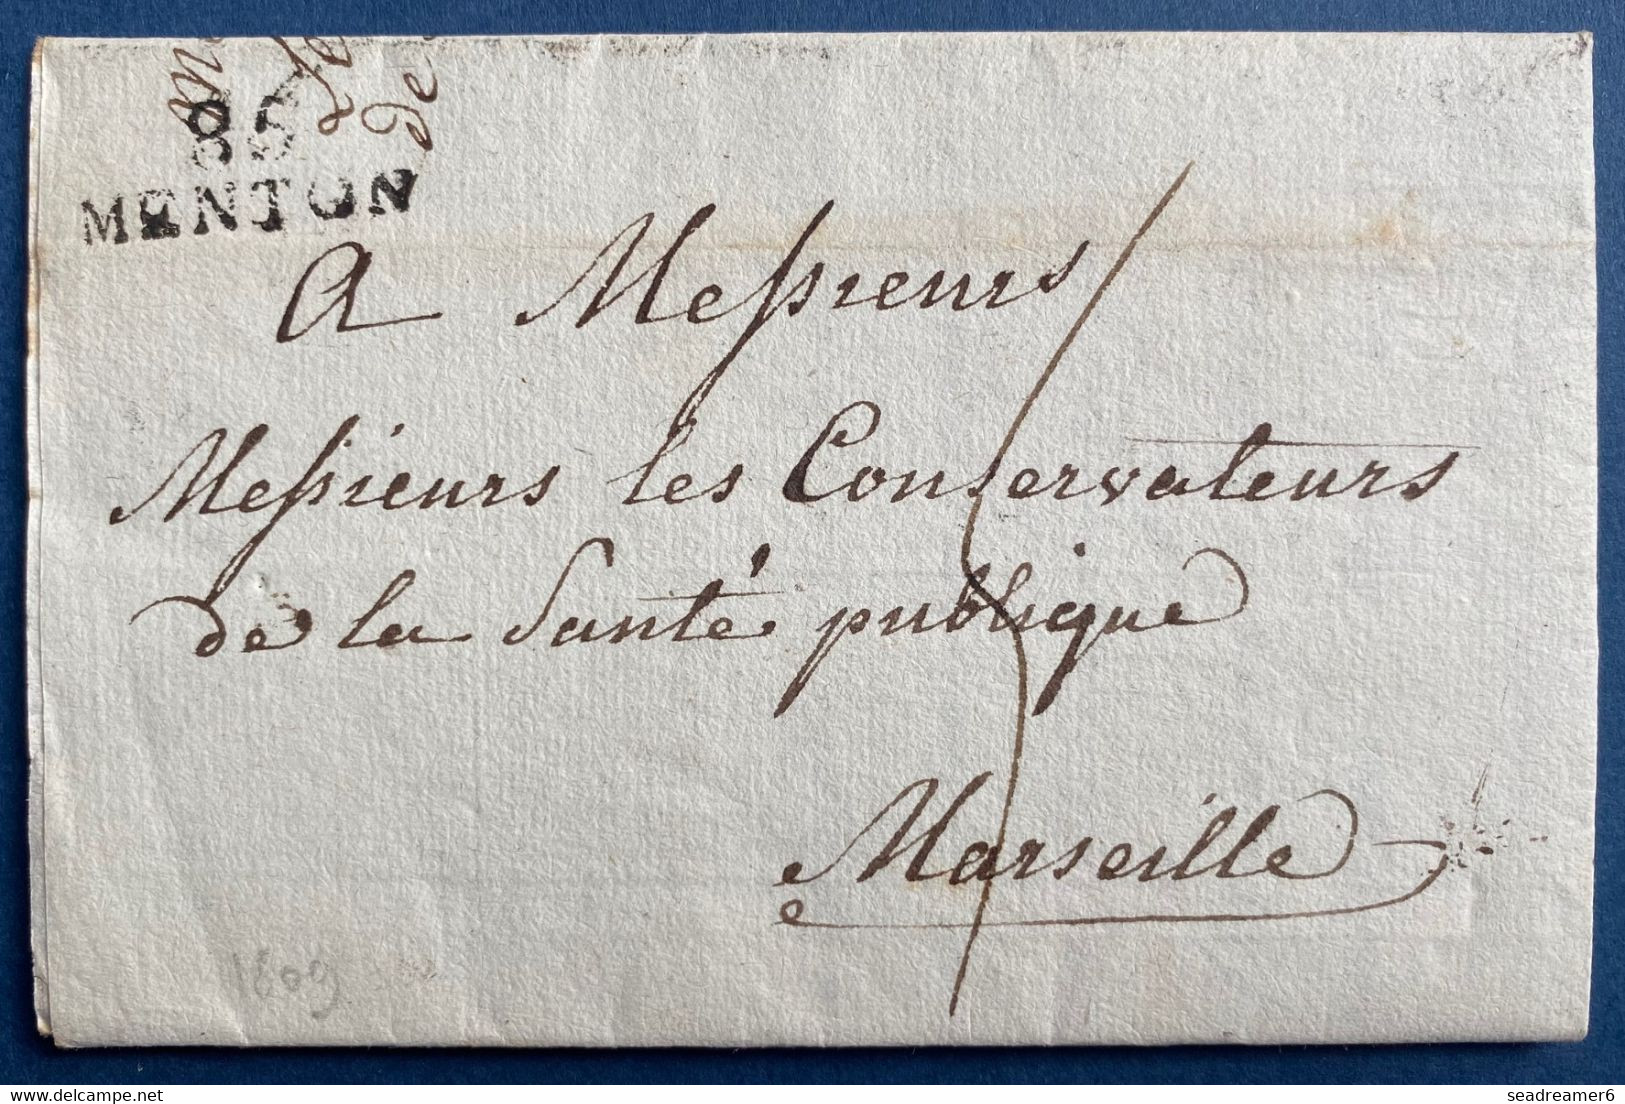 85
MENTON
A Messieurs
Messieurs les Conservateurs
de la Santé publique
Marseille
1809
seadreamer6